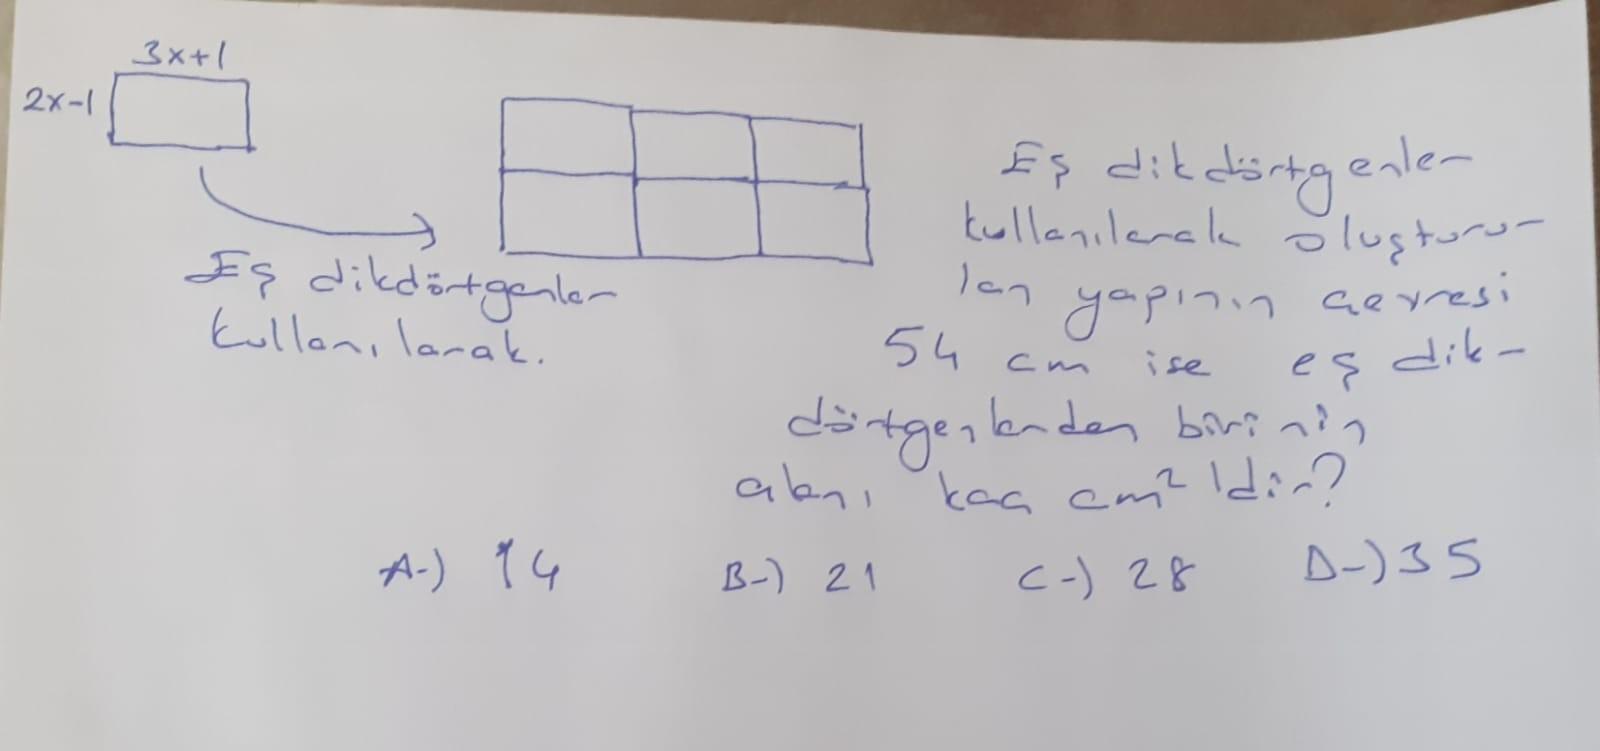 3x+1
2x-1
Eş dikdörtgenler
kullanılarak.
Eş dikdörtgenler
kullanılarak oluşturu-
lan yapının çevresi
54 cm ise eş dik-
dörtgenlerden birinin
alanı kaç cm² 'dir?
A-) 14 B-) 21 C-) 28 D-) 35